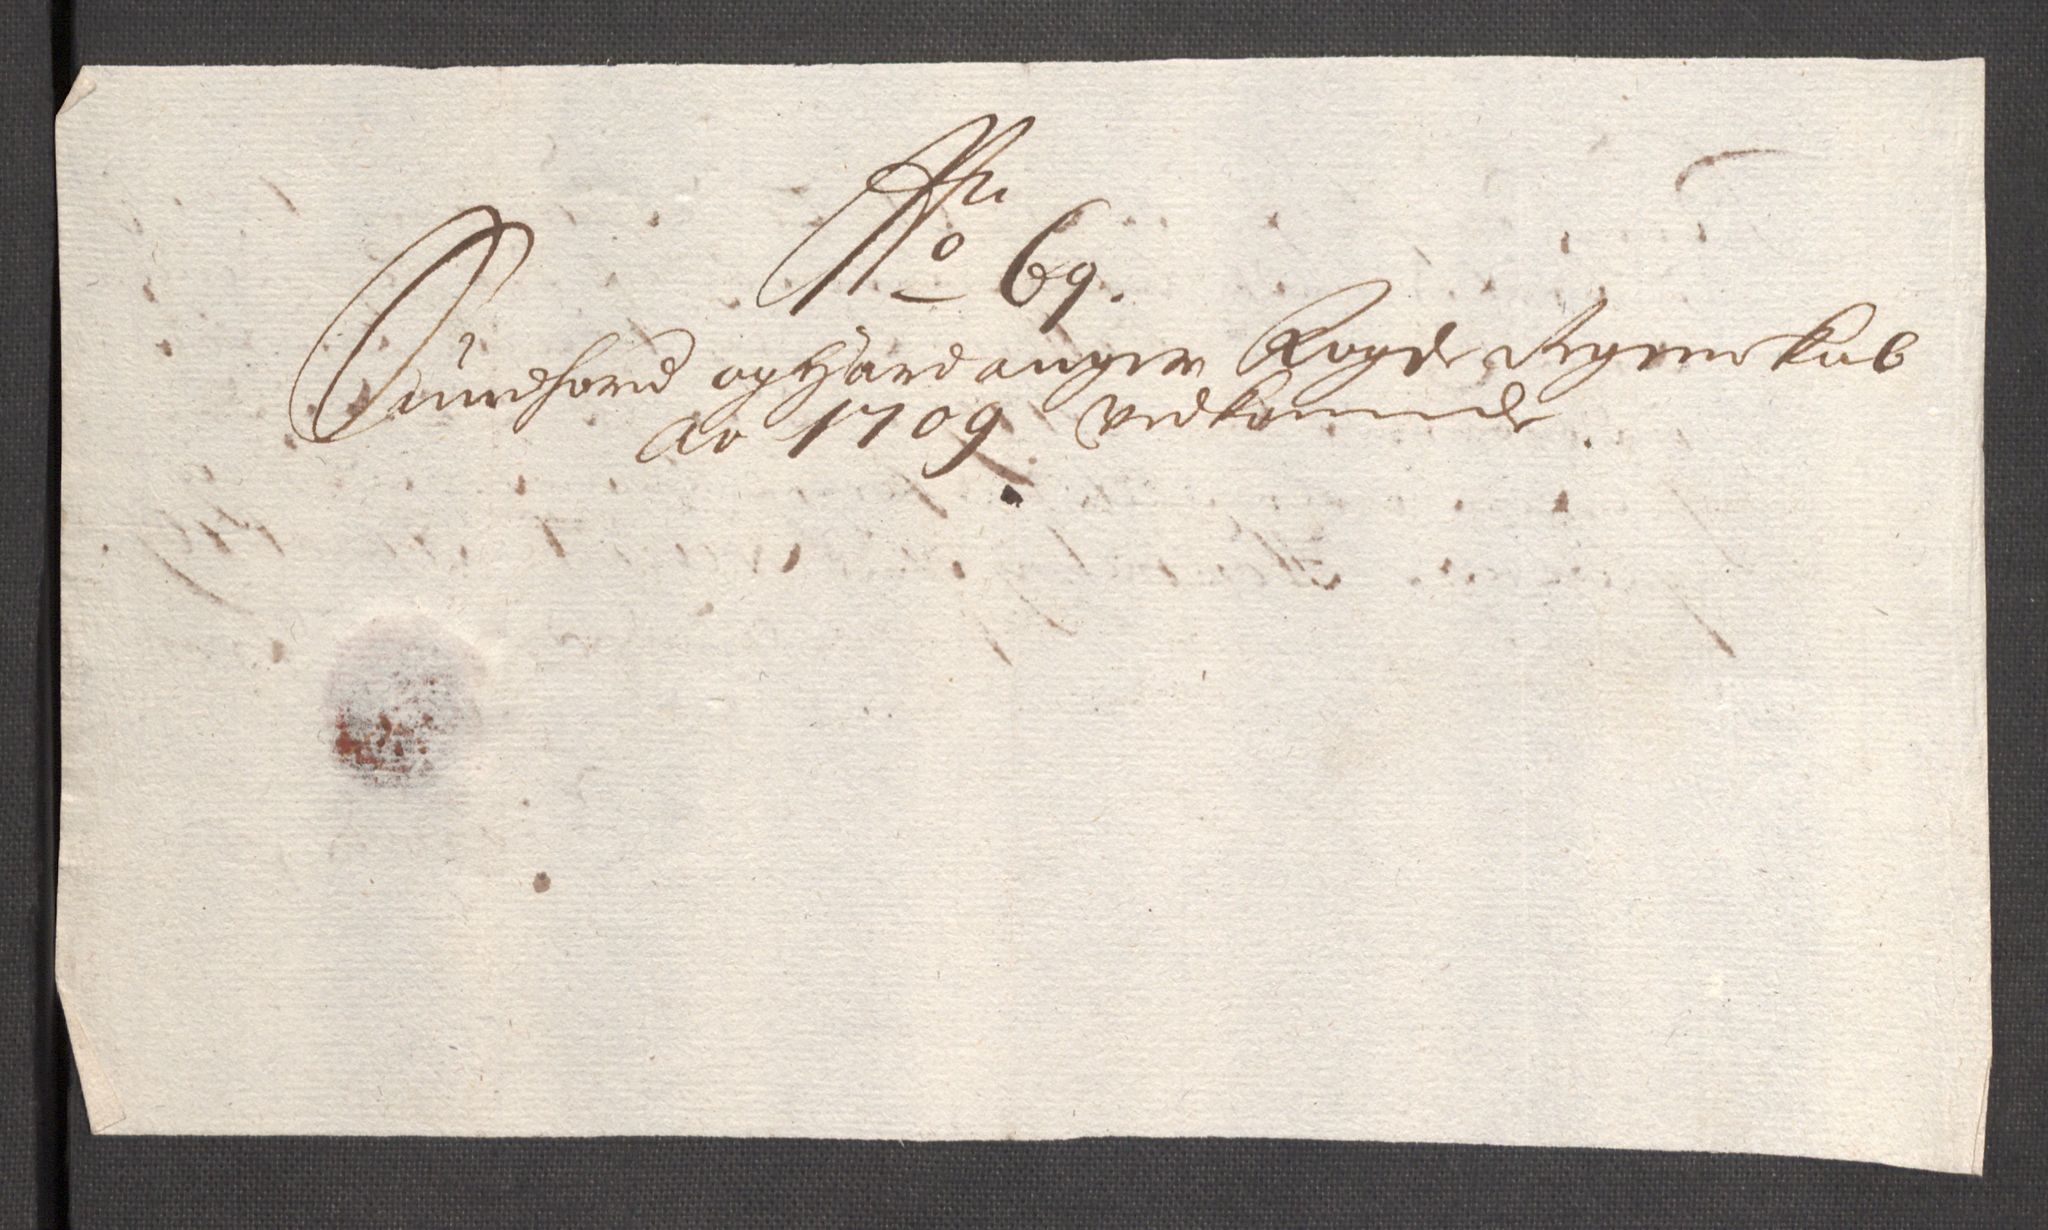 No 69.
Sundhord og Hardanger Fogde Regenskab
ao 1709 vedkommende.